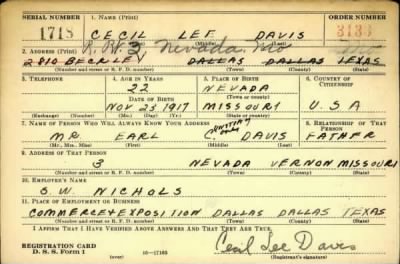 SERIAL NUMBER 1. NAME (Print) ORDER NUMBER
1718 CECIL LEE DAVIS 3133
(First) (Middle) (Last)
2. ADDRESS (Print) R.R. 3, Nevada, Mo
2810 BECKLEY DALLAS DALLAS TEXAS
(Number and street or R. F. D. number) (Town) (County) (State)
3. TELEPHONE 4. AGE IN YEARS 5. PLACE OF BIRTH 6. COUNTRY OF CITIZENSHIP
22 NEVADA
DATE OF BIRTH (Town or county)
NOV 23 1917 MISSOURI U S A
(Exchange) (Number) (Mo.) (Day) (Yr.) (State or country)
7. NAME OF PERSON WHO WILL ALWAYS KNOW YOUR ADDRESS 8. RELATIONSHIP OF THAT PERSON
MR. EARL C. (INITIAL only) DAVIS FATHER
(Mr., Mrs., Miss) (First) (Middle) (Last)
9. ADDRESS OF THAT PERSON
3 NEVADA VERNON MISSOURI
(Number and street or R. F. D. number) (Town) (County) (State)
10. EMPLOYER'S NAME
G. W. NICHOLS
11. PLACE OF EMPLOYMENT OR BUSINESS
COMMERCE + EXPOSITION DALLAS DALLAS TEXAS
(Number and street or R. F. D. number) (Town) (County) (State)
I AFFIRM THAT I HAVE VERIFIED ABOVE ANSWERS AND THAT THEY ARE TRUE.
REGISTRATION CARD
D. S. S. Form 1 (over) 16—17105 Cecil Lee Davis
(Registrant's signature)